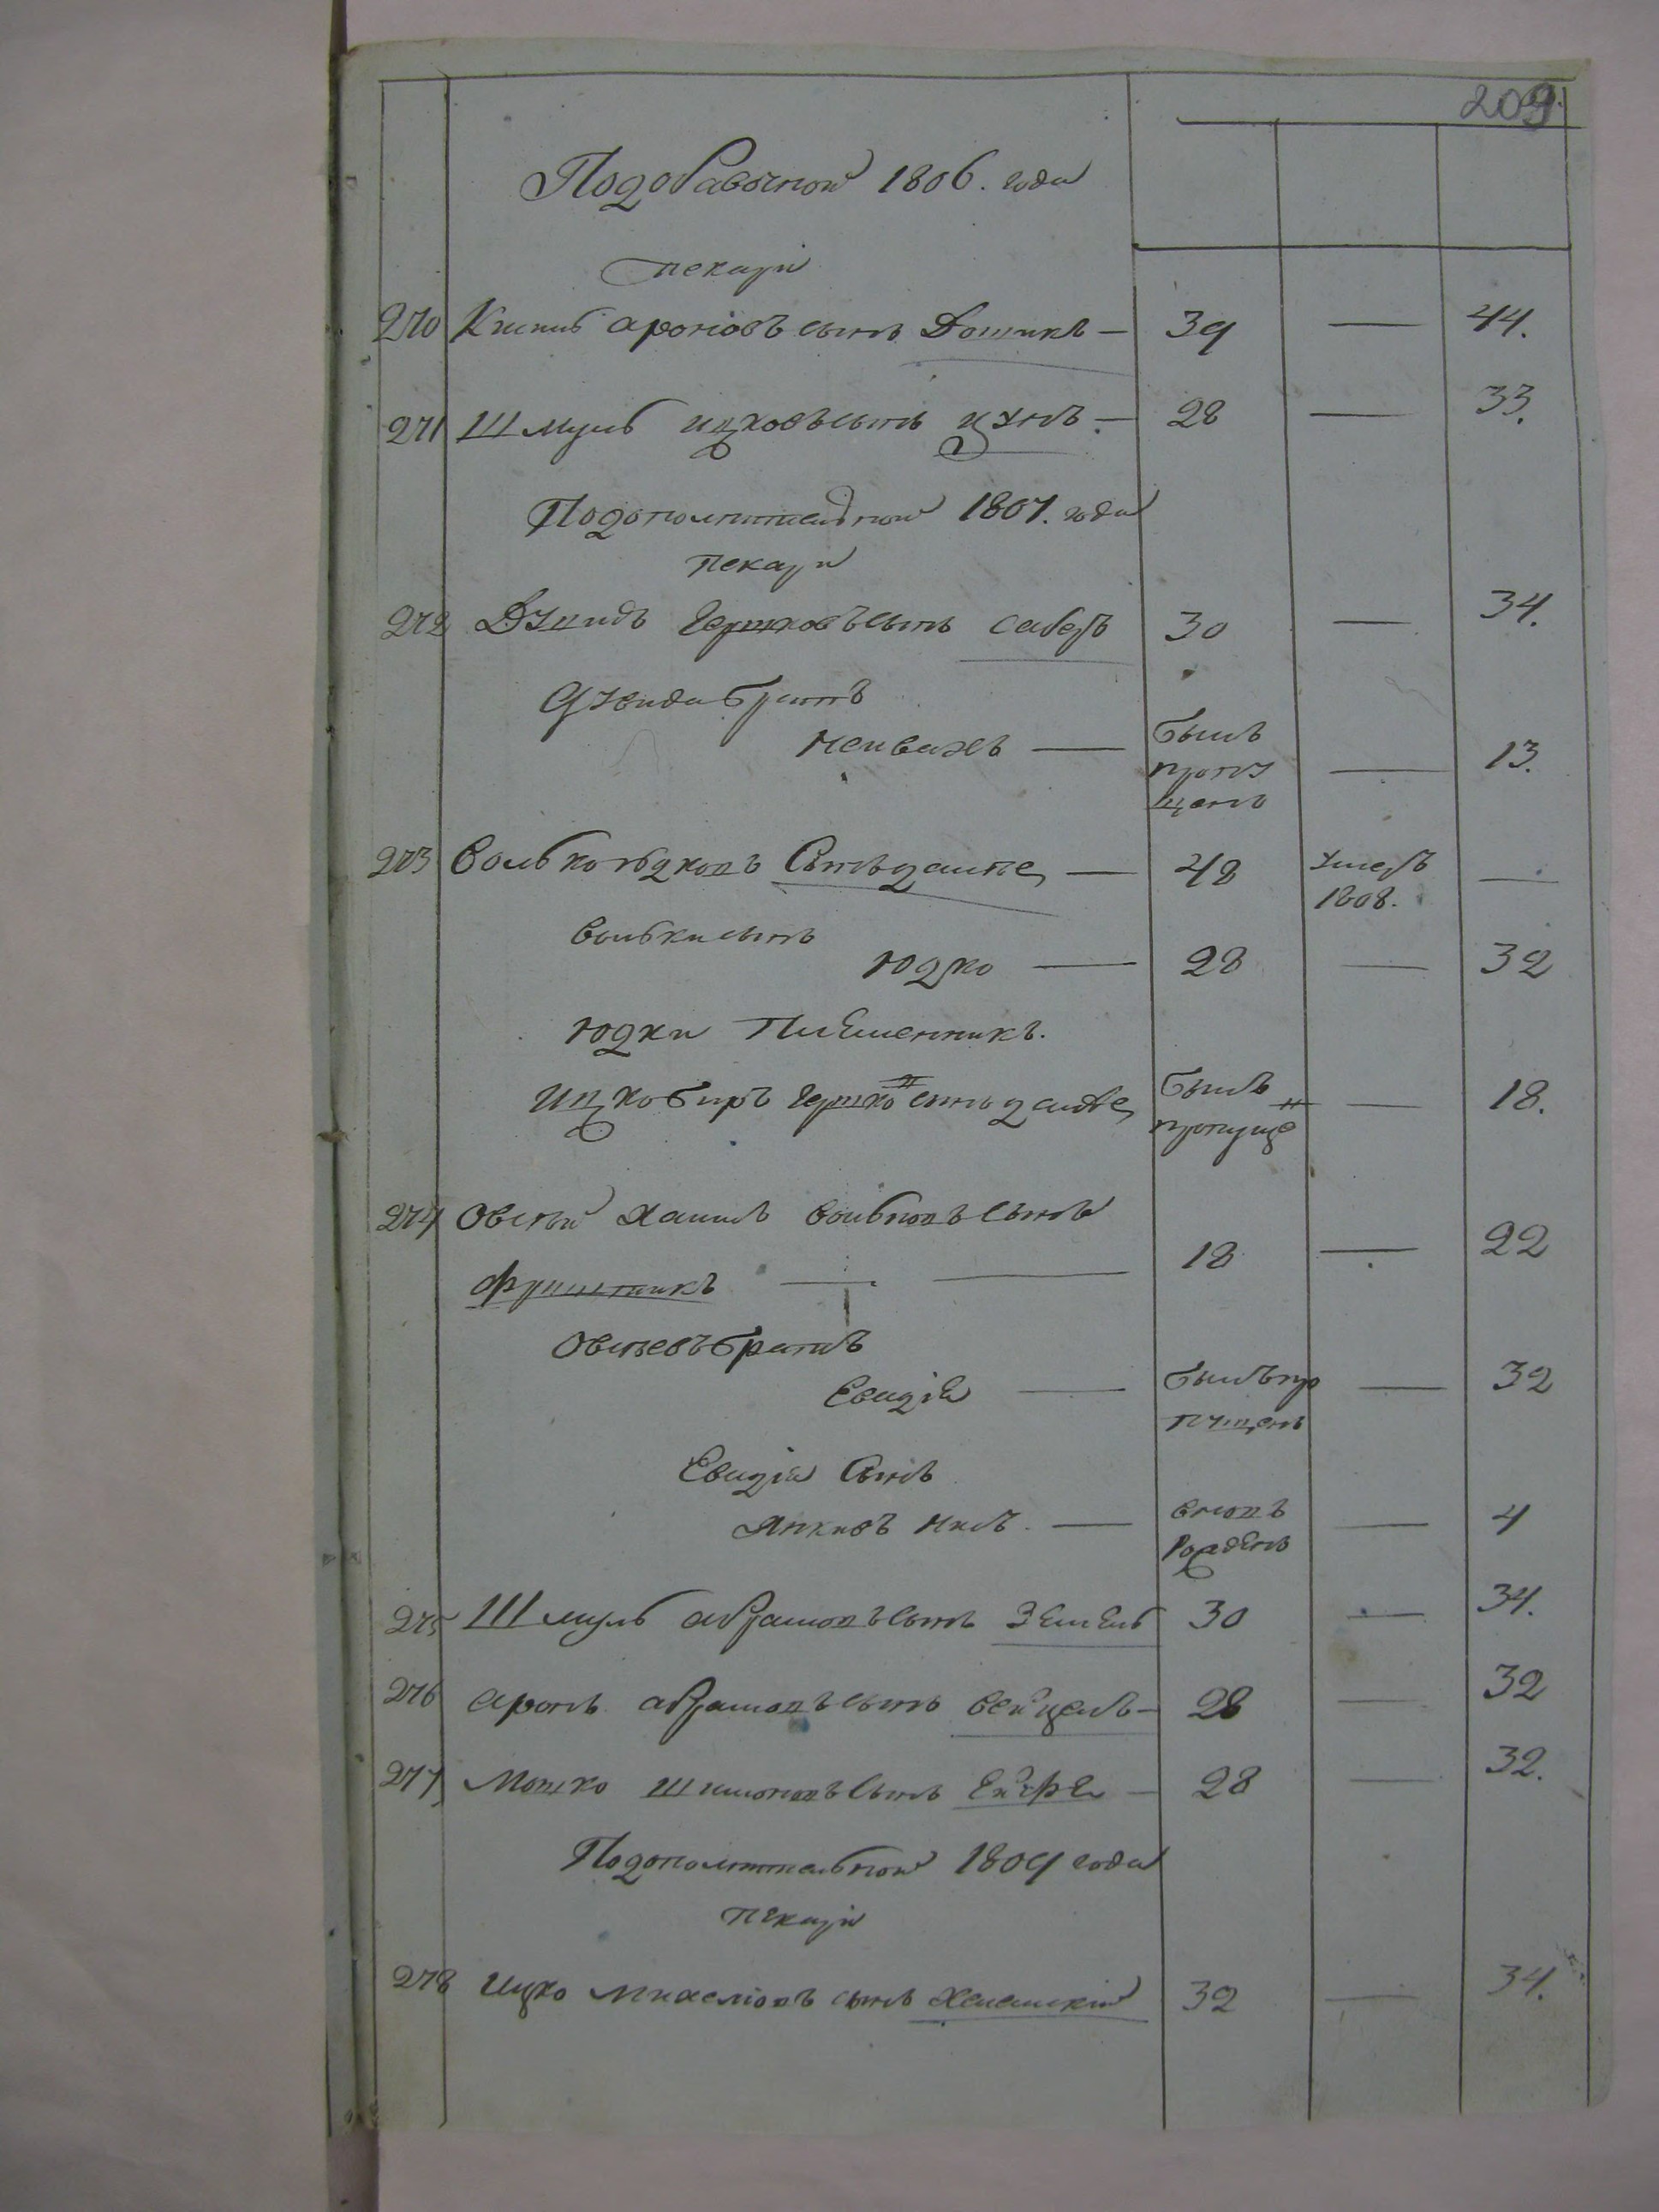 209
Подобавочной 1806. года
пекари
270 Кисиль ароновъ сынъ Дошикъ — 39 — 44.
271 Шмуль ицковъ сынъ цунъ — 28 — 33.
Подополнительной 1807. года
пекари
272 Дувидъ Гершковъ сынъ саверъ 30 — 34.
Дувида братъ
Неивахъ — былъ — 13.
пропу
щенъ
273 Волько юдковъ Сынъ залпе — 48 умеръ —
1808.
Вольки сынъ
юдко — 28 — 32
юдки Племенникъ.
Ицко биръ Гершко сынъ залпе былъ — 18.
пропуще н
274 Овсей Хаимъ вольковъ сынъ
фриштикъ — — 18 — 22
Овсеевъ братъ
Евадiя — былъ про — 32
пущенъ
Евадiя Сынъ
Янкивъ — вновь — 4
рожденъ
275 Шмуль абрамовъ сынъ Земель 30 — 34.
276 аронъ абрамовъ сынъ Вейцель — 28 — 32
277 Мошко Шимоновъ Сынъ — 28 — 32.
Подополнительной 1809 года
пекари
278 Ицко Михелiовъ сынъ 32 — 34.